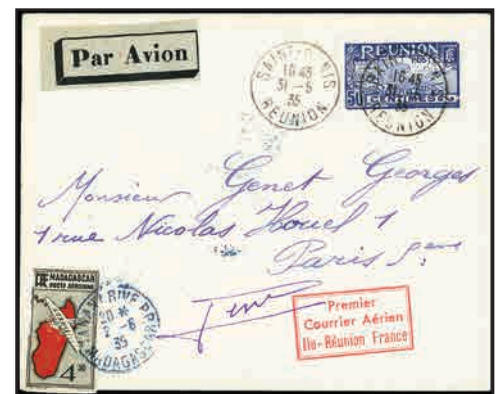 Par Avion
SAINT-DENIS
16 45
31-5
35
REUNION
REUNION
POSTES
50
CENTIMES
16 45
31
REUNION
Monsieur Genet Georges
1 rue Nicolas Houel 1
Paris 5eme
MADAGASCAR
poste aérienne
4
20 *
2-6
35
MADAGASCAR
Premier
Courrier Aérien
Ile-Réunion France